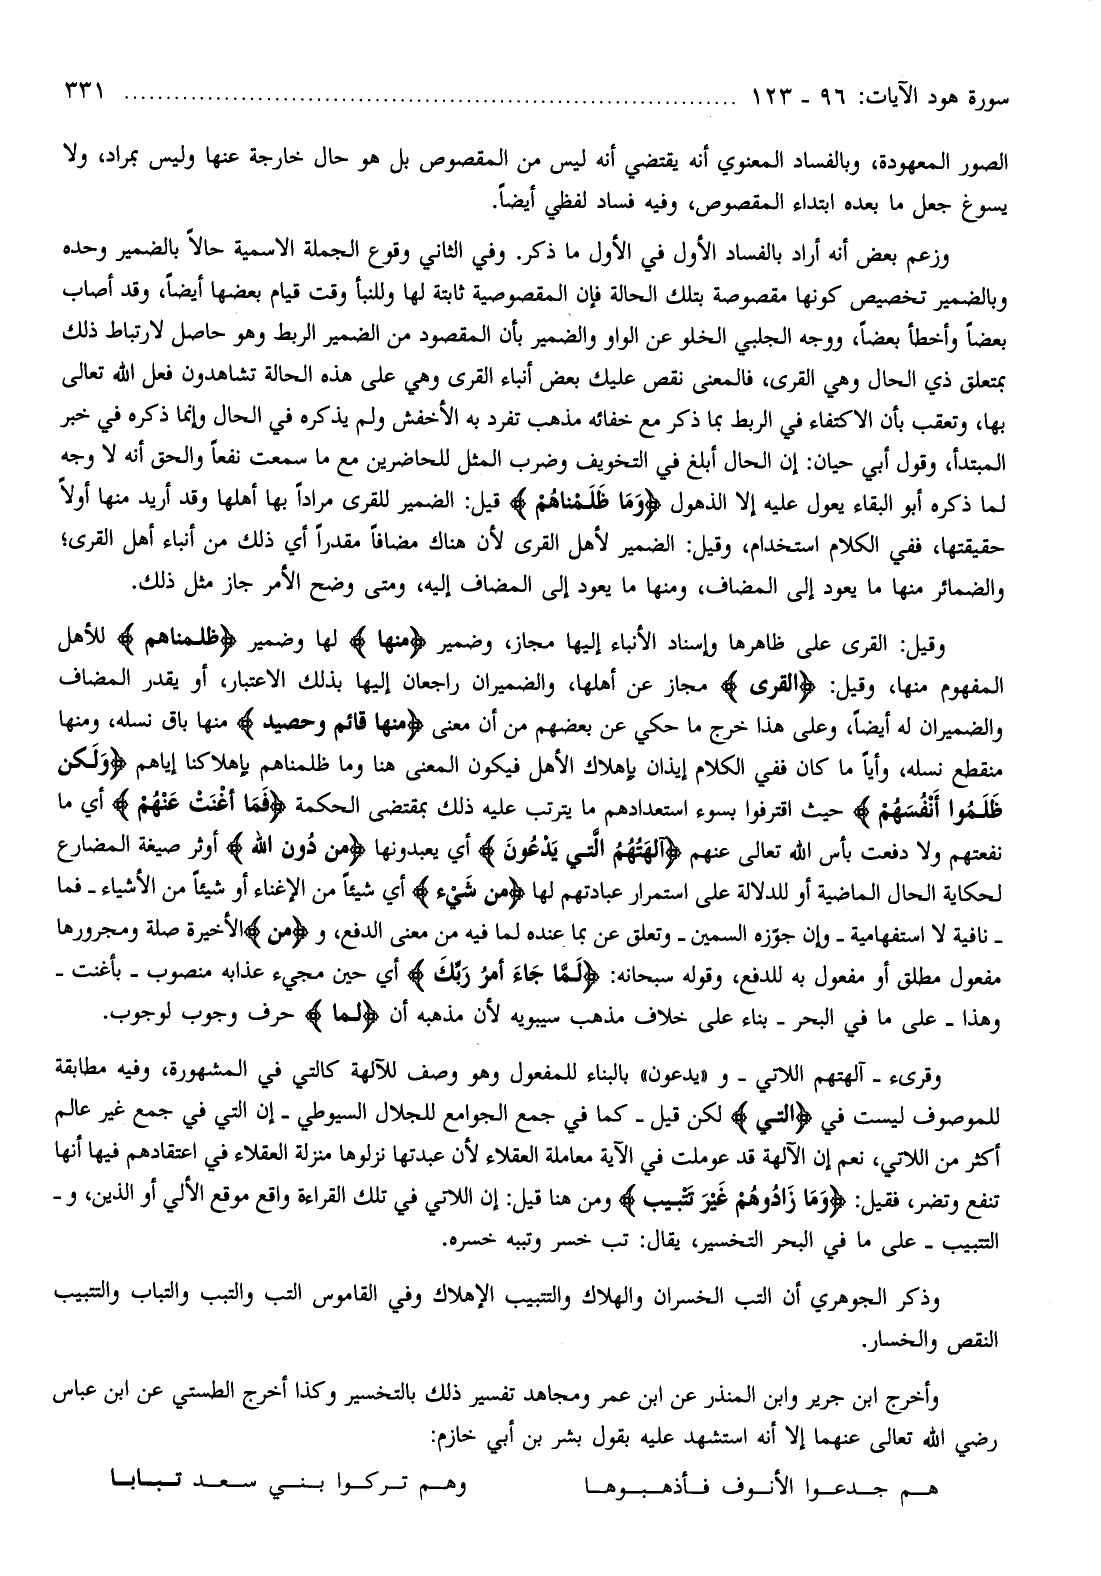 سورة هود الآيات: ٩٦ ـ ١٢٣ ........................................................................... ٣٣١
الصور المعهودة، وبالفساد المعنوي أنه يقتضي أنه ليس من المقصوص بل هو حال خارجة عنها وليس بمراد، ولا
يسوغ جعل ما بعده ابتداء المقصوص، وفيه فساد لفظي أيضاً.
وزعم بعض أنه أراد بالفساد الأول في الأول ما ذكر. وفي الثاني وقوع الجملة الاسمية حالاً بالضمير وحده
وبالضمير تخصيص كونها مقصوصة بتلك الحالة فإن المقصوصية ثابتة لها وللنبأ وقت قيام بعضها أيضاً، وقد أصاب
بعضاً وأخطأ بعضاً، ووجه الجلبي الخلو عن الواو والضمير بأن المقصود من الضمير الربط وهو حاصل لارتباط ذلك
بمتعلق ذي الحال وهي القرى، فالمعنى نقص عليك بعض أنباء القرى وهي على هذه الحالة تشاهدون فعل الله تعالى
بها، وتعقب بأن الاكتفاء في الربط بما ذكر مع خفائه مذهب تفرد به الأخفش ولم يذكره في الحال وإنما ذكره في خبر
المبتدأ، وقول أبي حيان: إن الحال أبلغ في التخويف وضرب المثل للحاضرين مع ما سمعت نفعاً والحق أنه لا وجه
لما ذكره أبو البقاء يعول عليه إلا الذهول ﴿وَمَا ظَلَمْناهُمْ﴾ قيل: الضمير للقرى مراداً بها أهلها وقد أريد منها أولاً
حقيقتها، ففي الكلام استخدام، وقيل: الضمير لأهل القرى لأن هناك مضافاً مقدراً أي ذلك من أنباء أهل القرى؛
والضمائر منها ما يعود إلى المضاف، ومنها ما يعود إلى المضاف إليه، ومتى وضح الأمر جاز مثل ذلك.
وقيل: القرى على ظاهرها وإسناد الأنباء إليها مجاز، وضمير ﴿منها﴾ لها وضمير ﴿ظلمناهم﴾ للأهل
المفهوم منها، وقيل: ﴿القرى﴾ مجاز عن أهلها، والضميران راجعان إليها بذلك الاعتبار، أو يقدر المضاف
والضميران له أيضاً، وعلى هذا خرج ما حكي عن بعضهم من أن معنى ﴿منها قائم وحصيد﴾ منها باق نسله، ومنها
منقطع نسله، وأياً ما كان ففي الكلام إيذان بإهلاك الأهل فيكون المعنى هنا وما ظلمناهم بإهلاكنا إياهم ﴿وَلَكن
ظَلَمُوا أَنْفُسَهُمْ﴾ حيث اقترفوا بسوء استعدادهم ما يترتب عليه ذلك بمقتضى الحكمة ﴿فَمَا أغْنَتْ عَنْهُمْ﴾ أي ما
نفعتهم ولا دفعت بأس الله تعالى عنهم ﴿آلهَتُهُمُ الَّتي يَدْعُونَ﴾ أي يعبدونها ﴿من دُون الله﴾ أوثر صيغة المضارع
لحكاية الحال الماضية أو للدلالة على استمرار عبادتهم لها ﴿من شَيْء﴾ أي شيئاً من الإغناء أو شيئاً من الأشياء ـ فما
ـ نافية لا استفهامية ـ وإن جوّزه السمين ـ وتعلق عن بما عنده لما فيه من معنى الدفع، و ﴿من﴾الأخيرة صلة ومجرورها
مفعول مطلق أو مفعول به للدفع، وقوله سبحانه: ﴿لَمَّا جَاءَ أمرُ رَبِّكَ﴾ أي حين مجيء عذابه منصوب ـ بأغنت ـ
وهذا ـ على ما في البحر ـ بناء على خلاف مذهب سيبويه لأن مذهبه أن ﴿لما﴾ حرف وجوب لوجوب.
وقرىء ـ آلهتهم اللاتي ـ و «يدعون» بالبناء للمفعول وهو وصف للآلهة كالتي في المشهورة، وفيه مطابقة
للموصوف ليست في ﴿التي﴾ لكن قيل ـ كما في جمع الجوامع للجلال السيوطي ـ إن التي في جمع غير عالم
أكثر من اللاتي، نعم إن الآلهة قد عوملت في الآية معاملة العقلاء لأن عبدتها نزلوها منزلة العقلاء في اعتقادهم فيها أنها
تنفع وتضر، فقيل: ﴿وَمَا زَادُوهُمْ غَيرَ تَتْبيب﴾ ومن هنا قيل: إن اللاتي في تلك القراءة واقع موقع الألي أو الذين، و ـ
التتبيب ـ على ما في البحر التخسير، يقال: تب خسر وتببه خسره.
وذكر الجوهري أن التب الخسران والهلاك والتتبيب الإهلاك وفي القاموس التب والتبب والتباب والتتبيب
النقص والخسار.
وأخرج ابن جرير وابن المنذر عن ابن عمر ومجاهد تفسير ذلك بالتخسير وكذا أخرج الطستي عن ابن عباس
رضي الله تعالى عنهما إلا أنه استشهد عليه بقول بشر بن أبي خازم:
هـم جـدعـوا الأنـوف فـأذهـبـوهـا وهـم تـركـوا بـنـي سـعـد تـبـابـا